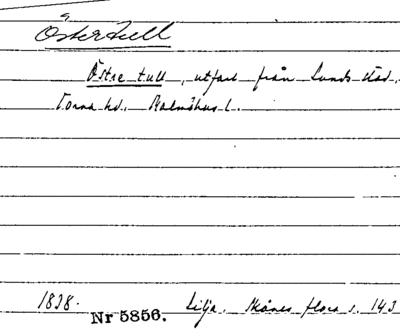 Östertull
Östre tull, utfart från Lunds stad,
Torna hd. Malmöhus l.
1838. Nr 5856. Lilja. Skånes flora s. 143